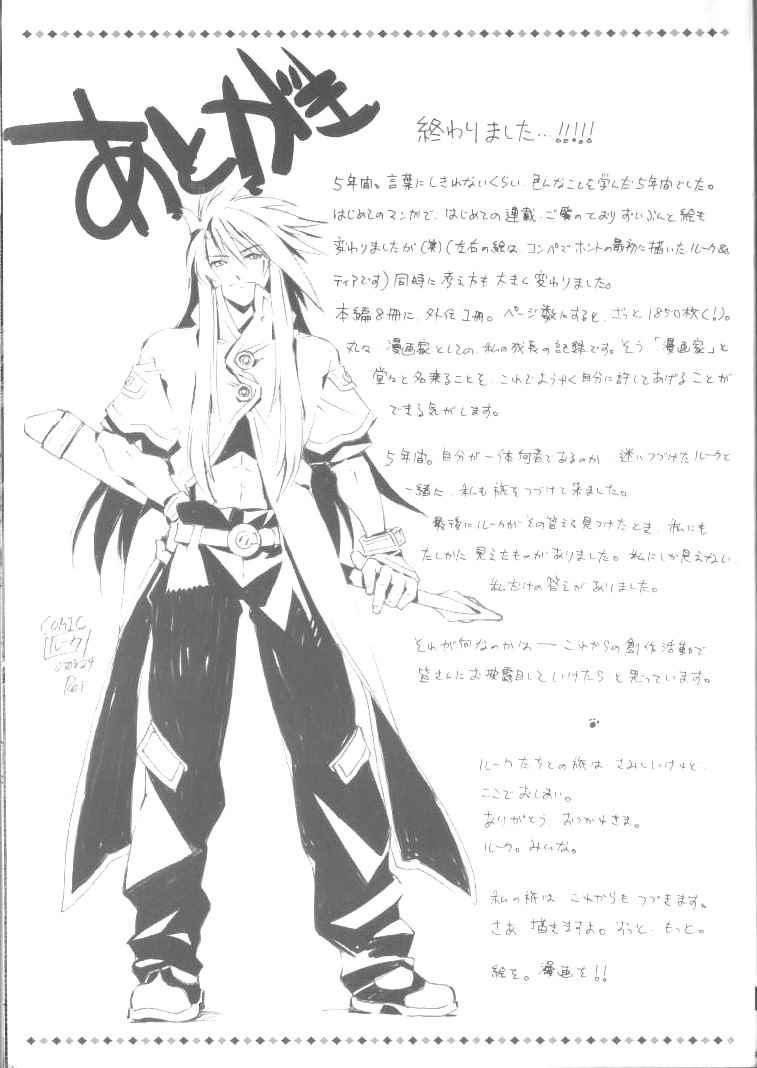 あとがき
終わりました…!!!!!
5年間。言葉にしきれないくらい、色んなことを学んだ5年間でした。
はじめてのマンガで、はじめての連載、ご覧のとおりずいぶんと絵も
変わりましたが(笑)(左右の絵は コンペでホントの最初に描いたルーク&
ティアです)同時に考え方も大きく変わりました。
本編8冊に、外伝1冊。ページ数にすると、ざっと1850枚(!)。
丸々 漫画家としての、私の成長の記録です。そう「漫画家」と
堂々と名乗ることを、これでようやく自分に許してあげることが
できる気がします。
5年間。自分が一体何者であるのか 迷いつづけたルークと
一緒に、私も旅をつづけて来ました。
最後にルークがその答えを見つけたとき、私にも
たしかに見えたものがありました。私にしか見えない、
私だけの答えがありました。
それが何なのかは――これからの創作活動で
皆さんにお披露目していけたら と思っています。
ルークたちとの旅は さみしいけれど、
ここでおしまい。
ありがとう、おつかれさま。
ルーク。みんな。
私の旅は これからもつづきます。
さあ 描きますよ。ずっと、もっと。
絵を。漫画を!!
COMIC
ルーク
Rei